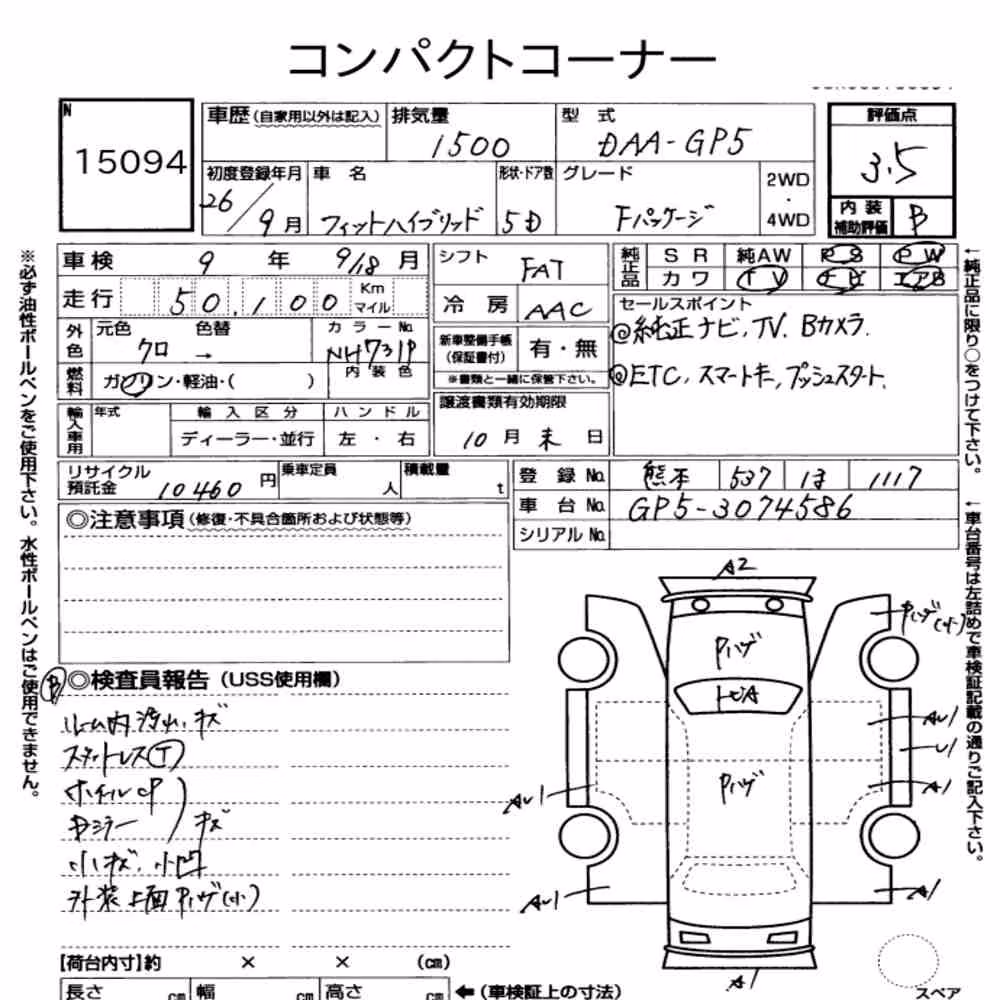 コンパクトコーナー
N
15094
車歴 (自家用以外は記入)
排気量
1500
型 式
DAA-GP5
評価点
3.5
初度登録年月
26/9月
車 名
フィットハイブリッド
形状・ドア数
5D
グレード
Fパッケージ
2WD
・
4WD
内装
補助評価
B
車検
9 年 9/18 月
走行
50,100
Km
マイル
外色
元色
クロ
色替
→
カラーNo.
NH731P
燃料
ガソリン・軽油・( )
内装色
輸入車用
年式
輸入区分
ディーラー・並行
ハンドル
左・右
シフト
FAT
冷房
AAC
新車整備手帳
(保証書付)
有・無
※書類と一緒に保管下さい。
譲渡書類有効期限
10月末日
純正品
SR
純AW
PS
PW
カワ
TV
エアB
セールスポイント
◎純正ナビ, TV. Bカメラ.
◎ETC, スマートキー, プッシュスタート.
リサイクル
預託金
10460 円
乗車定員
人
積載量
t
登録 No.
熊本 537 1117
車台 No.
GP5-3074586
シリアル No.
◎注意事項 (修復・不具合箇所および状態等)
B
◎検査員報告 (USS使用欄)
ルーム内汚れ, キズ
スタットレスT
ホイルCP
ドミラー
キズ
小キズ, 小凹
外装上面Pハゲ(小)
【荷台内寸】約 × × (cm)
長さ cm
幅 cm
高さ cm
← (車検証上の寸法)
A2
Pハゲ
Pハゲ(小)
Pハゲ
AU1
U1
A1
AU1
AU1
A1
A1
スペア
※必ず油性ボールペンをご使用下さい。水性ボールペンはご使用できません。
←純正品に限り○をつけて下さい。
←車台番号は左詰めで車検証記載の通りご記入下さい。